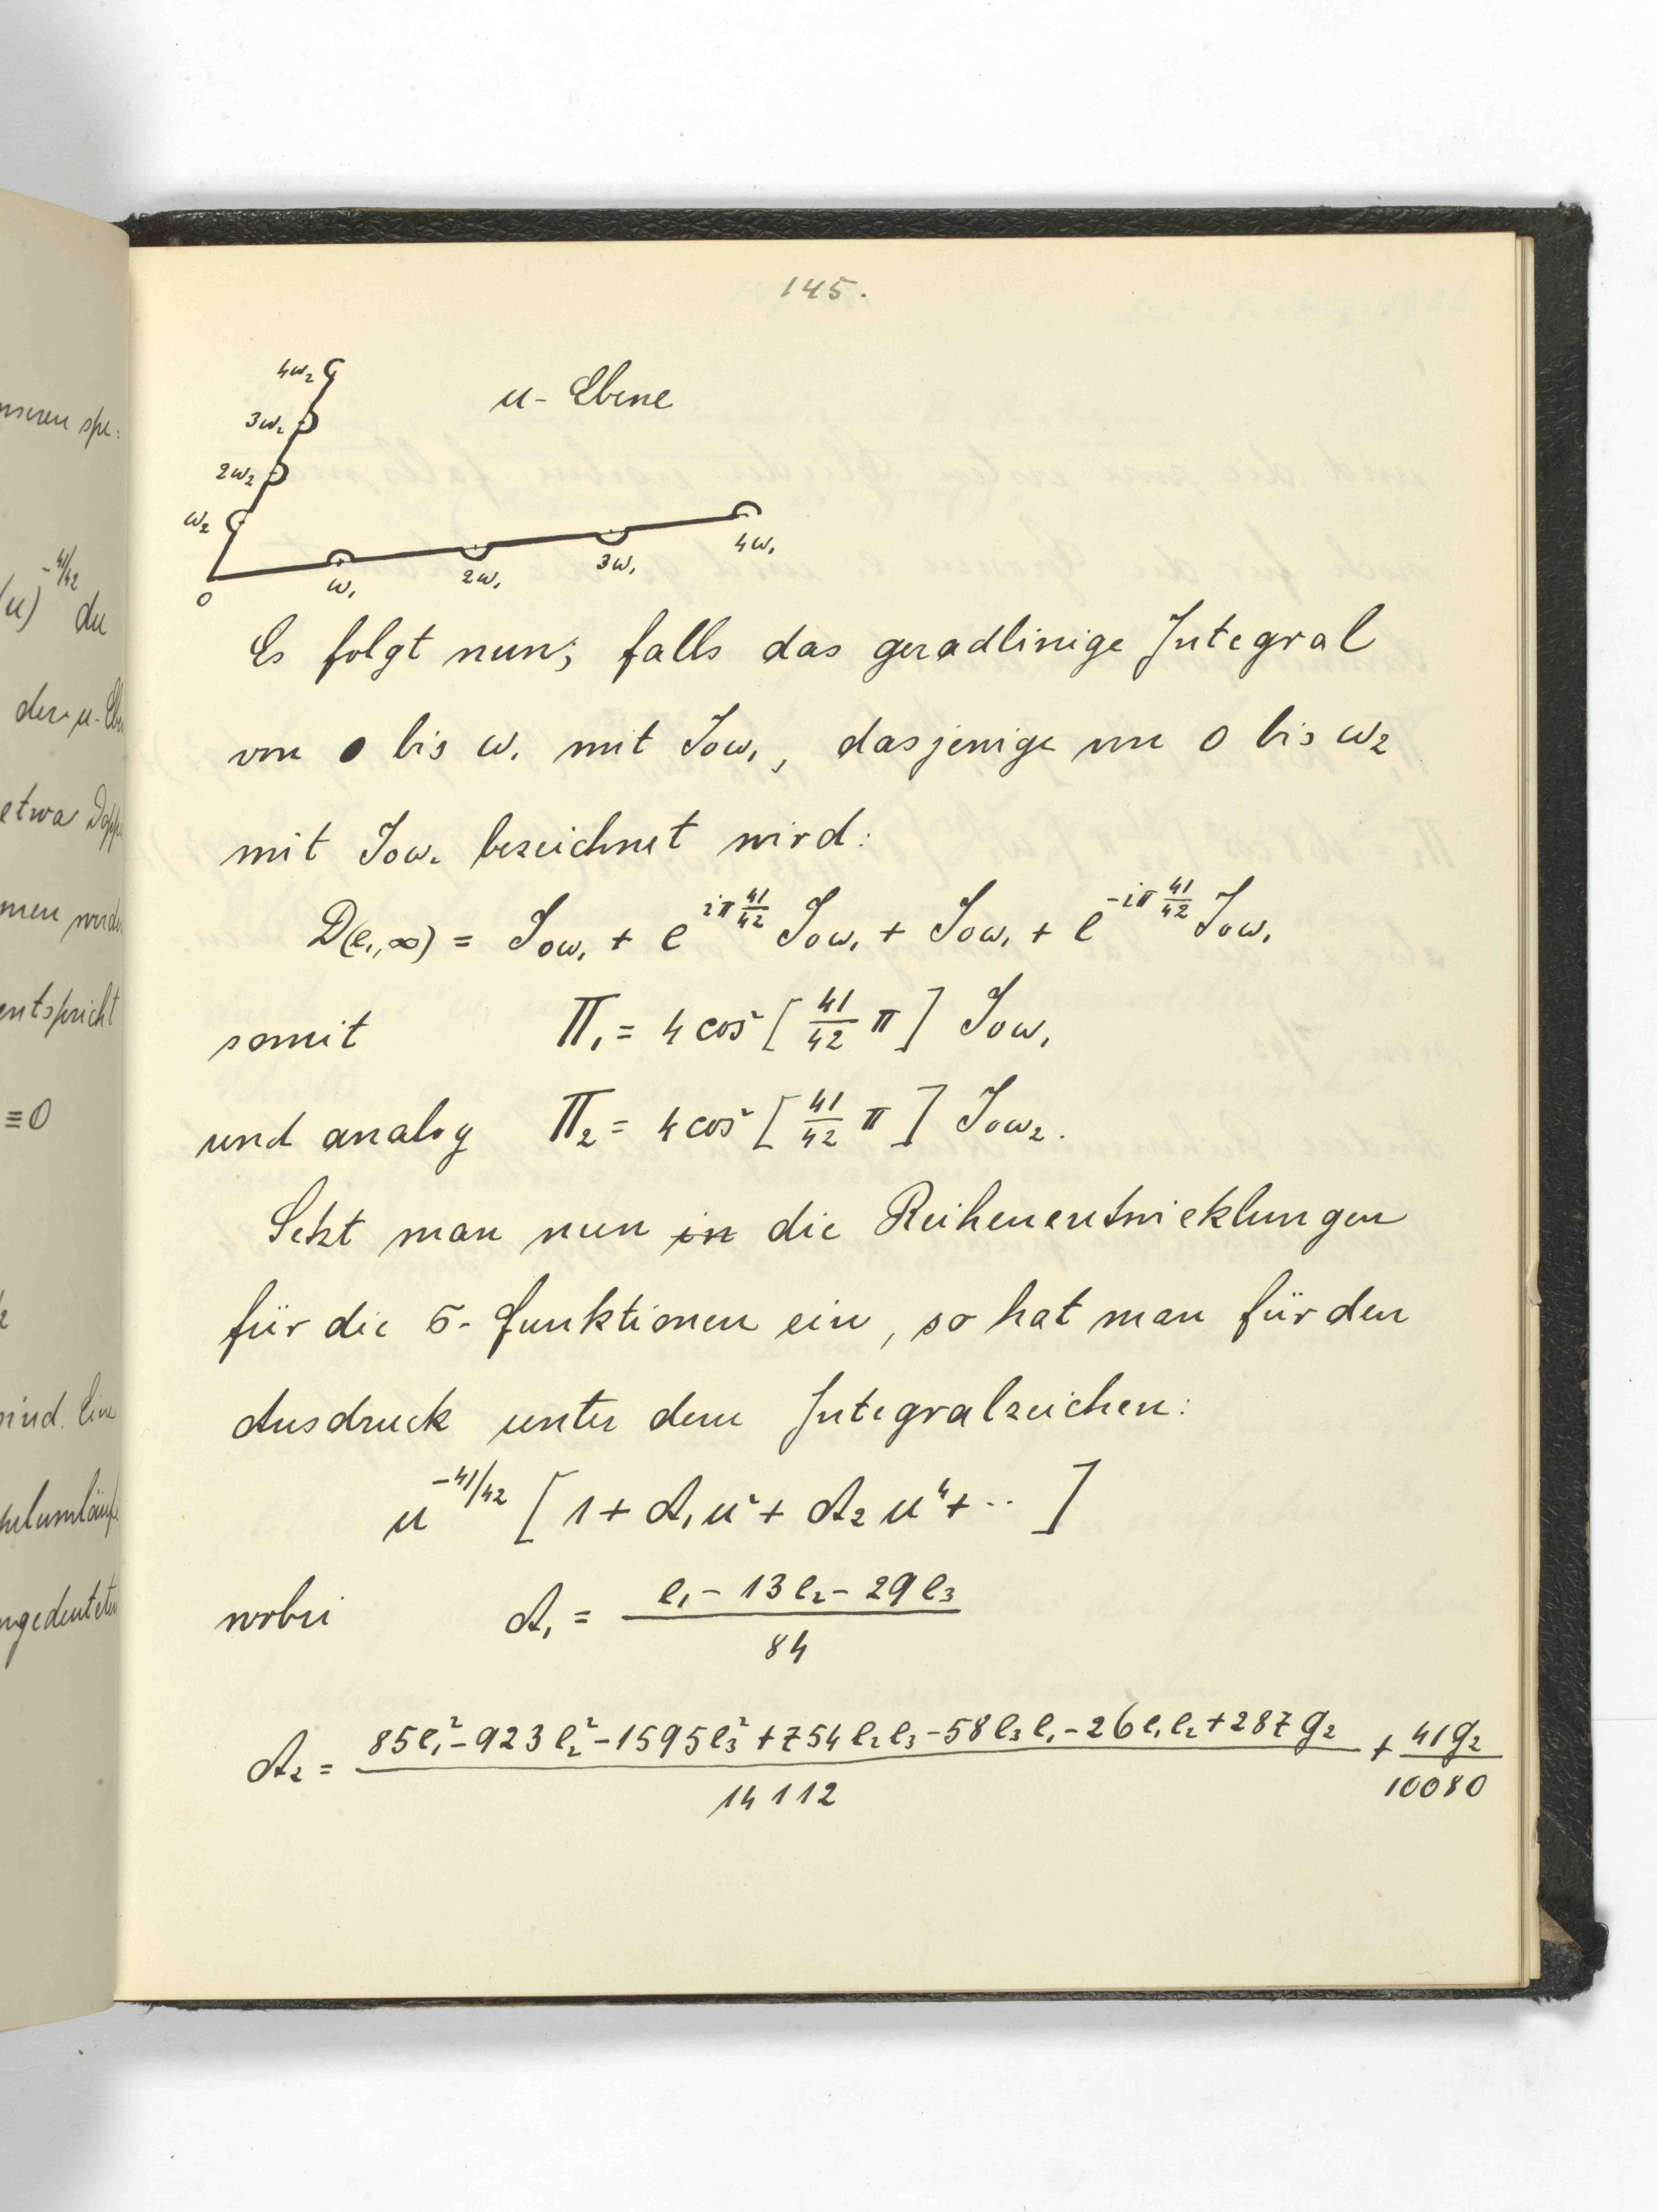 145.
u-Ebene
4ω₂
3ω₂
2ω₂
ω₂
0
ω₁
2ω₁
3ω₁
4ω₁
Es folgt nun; falls das geradlinige Integral
von 0 bis ω₁ mit J₀ω₁, dasjenige von 0 bis ω₂
mit J₀ω₂ bezeichnet wird:
D(e₁,∞) = J₀ω₁ + e^{iπ 41/42} J₀ω₁ + J₀ω₁ + e^{-iπ 41/42} J₀ω₁
somit Π₁ = 4 cos² [41/42 π] J₀ω₁
und analog Π₂ = 4 cos² [41/42 π] J₀ω₂.
Setzt man nun in die Reihenentwicklungen
für die σ-Funktionen ein, so hat man für den
Ausdruck unter dem Integralzeichen:
u^{-41/42} [1 + A₁u² + A₂u⁴ + ··]
wobei A₁ = (e₁ - 13e₂ - 29e₃)/84
A₂ = (85e₁² - 923e₂² - 1595e₃² + 754e₂e₃ - 58e₃e₁ - 26e₁e₂ + 287g₂)/14112 + 41g₂/10080
nseren spe=
(u)^{-41/42} du
der u-Eb
etwa Dopp
men wird
entspricht
≡0
sind. Eine
pelumläuf
ngedeuteten